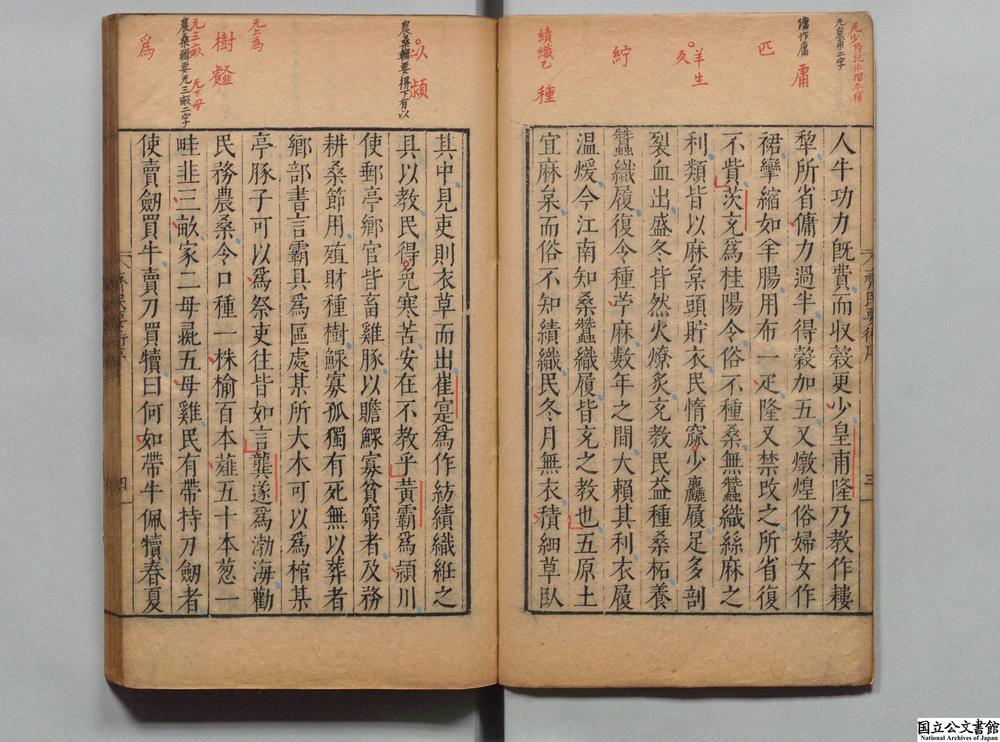 人牛功力既費而收穀更少皇甫隆乃教作耬
犁所省傭力過半得穀加五又燉煌俗婦女作
裙攣縮如羊腸用布一疋隆又禁改之所省復
不貲茨充爲桂陽令俗不種桑無蠶織絲麻之
利類皆以麻枲頭貯衣民惰窳少麤履足多剖
裂血出盛冬皆然火燎炙充教民益種桑柘養
蠶織履復令種苧麻數年之間大賴其利衣履
溫煖今江南知桑蠶織履皆充之教也五原土
宜麻枲而俗不知績織民冬月無衣積細草臥
其中見吏則衣草而出崔寔爲作紡績織絍之
具以教民得免寒苦安在不教乎黃霸爲頴川
使郵亭鄉官皆畜雞豚以贍鰥寡貧窮者及務
耕桑節用殖財種樹鰥寡孤獨有死無以葬者
鄉部書言霸具爲區處某所大木可以爲棺某
亭豚子可以爲祭吏往皆如言龔遂爲渤海勸
民務農桑令口種一株榆百本薤五十本葱一
畦韭三畝家二母彘五母雞民有帶持刀劒者
使賣劒買牛賣刀買犢曰何如帶牛佩犢春夏
齊民要術序
三
四
元皇甫二字
傭作庸
庸
匹
羊生
紵
績織乙
種
農桑輯要得下有以
以
潁
元上爲
樹
元三畝
元下母
農桑輯要元三畝二字
爲
国立公文書館
National Archives of Japan